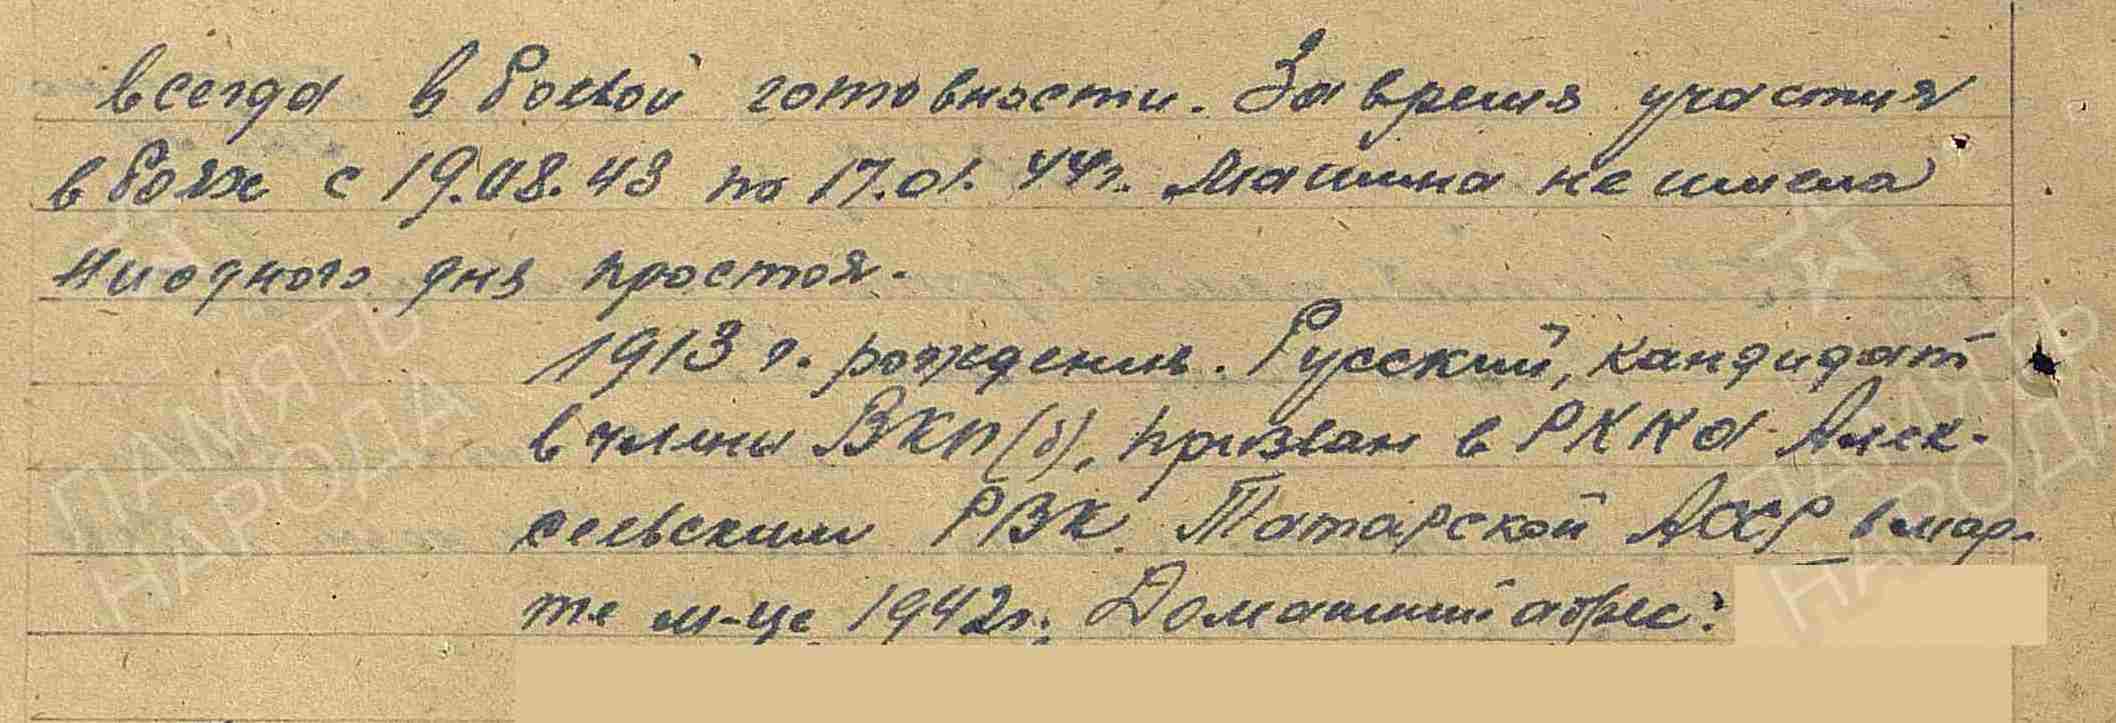 всегда в боевой готовности. За время участия
в боях с 19.08.43 по 17.01.44г. Машина не имела
ниодного дня простоя.
1913 г. рождения. Русский, кандидат
в члены ВКП(б), призван в РККА Алек-
сеевским РВК Татарской АССР в мар-
те м-це 1942г. Домашний адрес:
ПАМЯТЬ
НАРОДА
ПАМЯТЬ
НАРОДА